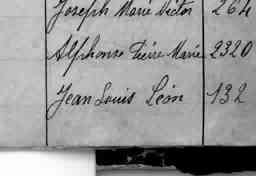 Joseph Marie Victor 264
Alphonse Pierre Marie 2320
Jean Louis Léon 132